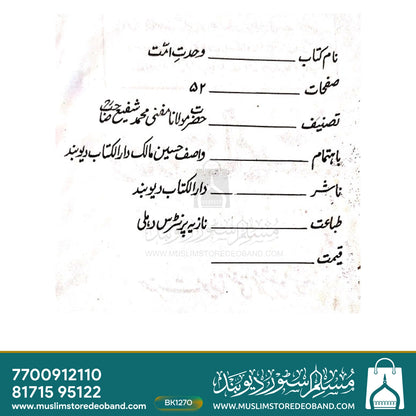 نام کتاب ــــــــ وحدتِ امّت
صفحات ــــــــ ۵۲
تصنیف ــــــــ حضرت مولانا مفتی محمد شفیع صاحبؒ
باہتمام ــــــــ واصف حسین مالک دارالکتاب دیوبند
ناشر ــــــــ دارالکتاب دیوبند
طباعت ــــــــ نازیہ پرنٹرس دہلی
قیمت ــــــــ
مسلم سٹور دیوبند
WWW.MUSLIMSTOREDEOBAND.COM
7700912110
81715 95122
www.muslimstoredeoband.com
BK1270
مسلم سٹور دیوبند
WWW.MUSLIMSTOREDEOBAND.COM